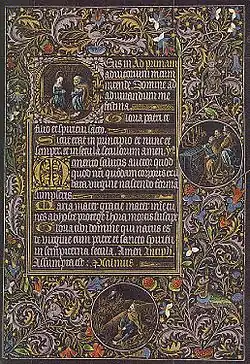 eus in Ad
adiutorium meum
intende Domine ad
adiuuandum me
festina
Gloria patri et
filio et spiritui sancto
Sicut erat in principio et nunc et
semper et in secula seculorum amen
Memento salutis auctor quod
quod nostri quondam corporis ex illi
bata virgine nascendo formam
sumpseris
Maria mater gracie mater mise
nos ab hoste protege hora mortis suscipe
Gloria tibi domine qui natus es
de virgine cum patre et sancto spiritu
in sempiterna secula Amen
Psalmus